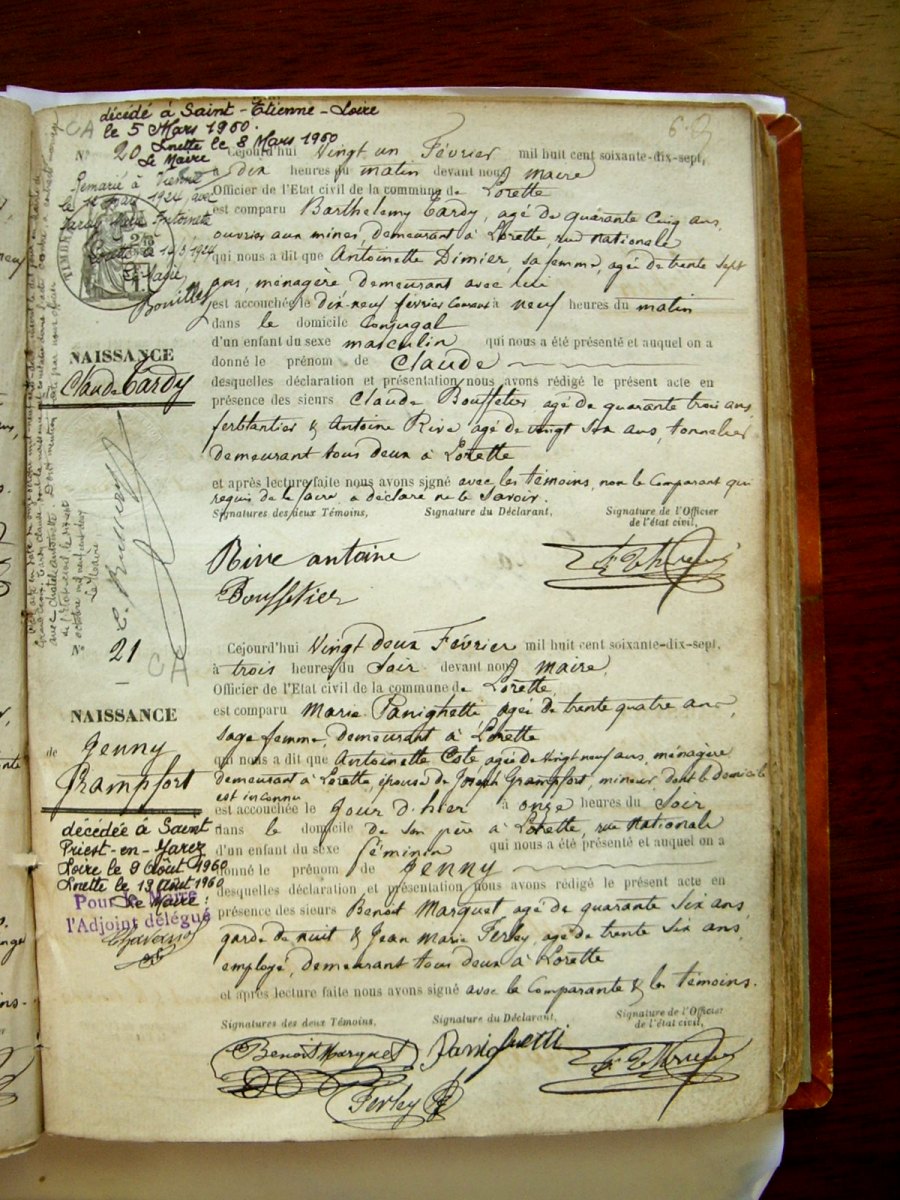 décédé à Saint-Etienne-Loire
CA le 5 Mars 1960.
Lorette le 8 Mars 1960
Le Maire
N° 20
Remarié à Vienne
le 1924 avec
Marie Antoinette
Lorette le 1924
Le Maire
TIMBRE
NAISSANCE
Claude Tardy
Cejourd'hui Vingt un Février mil huit cent soixante-dix-sept,
à dix heures du matin devant nous maire
Officier de l'Etat civil de la commune de Lorette
est comparu Barthelemy Tardy, agé de quarante Cinq ans,
ouvrier aux mines, demeurant à Lorette, rue Nationale
qui nous a dit que Antoinette Dimier, sa femme, agée de trente sept
ans, ménagère demeurant avec lui
est accouchée le dix-neuf février courant à neuf heures du matin
dans le domicile Conjugal
d'un enfant du sexe masculin qui nous a été présenté et auquel on a
donné le prénom de Claude
desquelles déclaration et présentation nous avons rédigé le présent acte en
présence des sieurs Claude Bouffetier agé de quarante trois ans,
ferblantier & Antoine Rive agé de vingt six ans, tonnelier
demeurant tous deux à Lorette
et après lecture faite nous avons signé avec les témoins, non le Comparant qui
requis de le faire, a déclaré ne le Savoir.
Signatures des deux Témoins, Signature du Déclarant, Signature de l'Officier
de l'état civil,
Rive antoine
Bouffetier
N° 21
CA
NAISSANCE
de Jenny
Grampfort
décédée à Saint
Priest-en-Jarez
Loire le 9 Août 1960
Lorette le 13 Août 1960
Le Maire:
Pour le Maire
l'Adjoint délégué
Cejourd'hui Vingt deux Février mil huit cent soixante-dix-sept,
à trois heures du Soir devant nous maire
Officier de l'Etat civil de la commune de Lorette,
est comparu Marie Panighetti, agée de trente quatre ans,
sage femme, demeurant à Lorette
qui nous a dit que Antoinette Coste agée de vingt neuf ans, ménagère
demeurant à Lorette, épouse de Joseph Grampfort, mineur, dont le domicile
est inconnu
est accouchée le Jour d'hier à onze heures du Soir
dans le domicile de son père à Lorette, rue Nationale
d'un enfant du sexe féminin qui nous a été présenté et auquel on a
donné le prénom de Jenny
desquelles déclaration et présentation nous avons rédigé le présent acte en
présence des sieurs Benoit Marquet agé de quarante Six ans
garde de nuit & Jean Marie Ferley, agé de trente Six ans,
employé, demeurant tous deux à Lorette
et après lecture faite nous avons signé avec la Comparante & les témoins.
Signatures des deux Témoins, Signature du Déclarant, Signature de l'Officier
de l'état civil,
Benoit Marquet Panighetti
Ferley